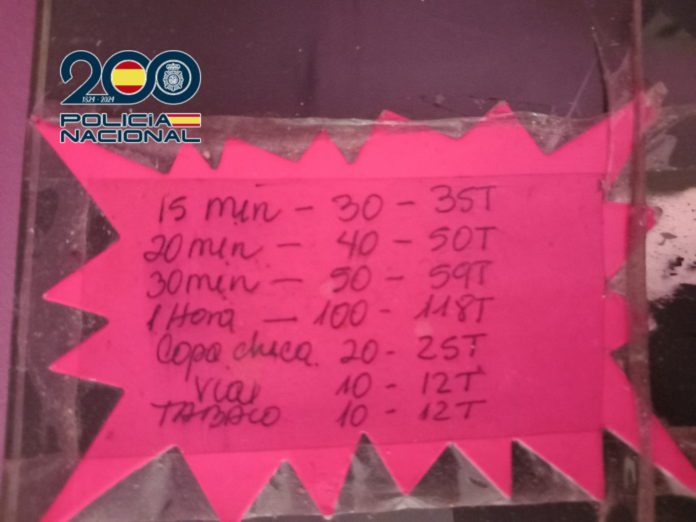 200
1824 - 2024
POLICIA
NACIONAL
15 min - 30 - 35T
20 min - 40 - 50T
30 min - 50 - 59T
1 Hora - 100 - 118T
Copa chica. 20 - 25T
10 - 12T
TABACO 10 - 12T